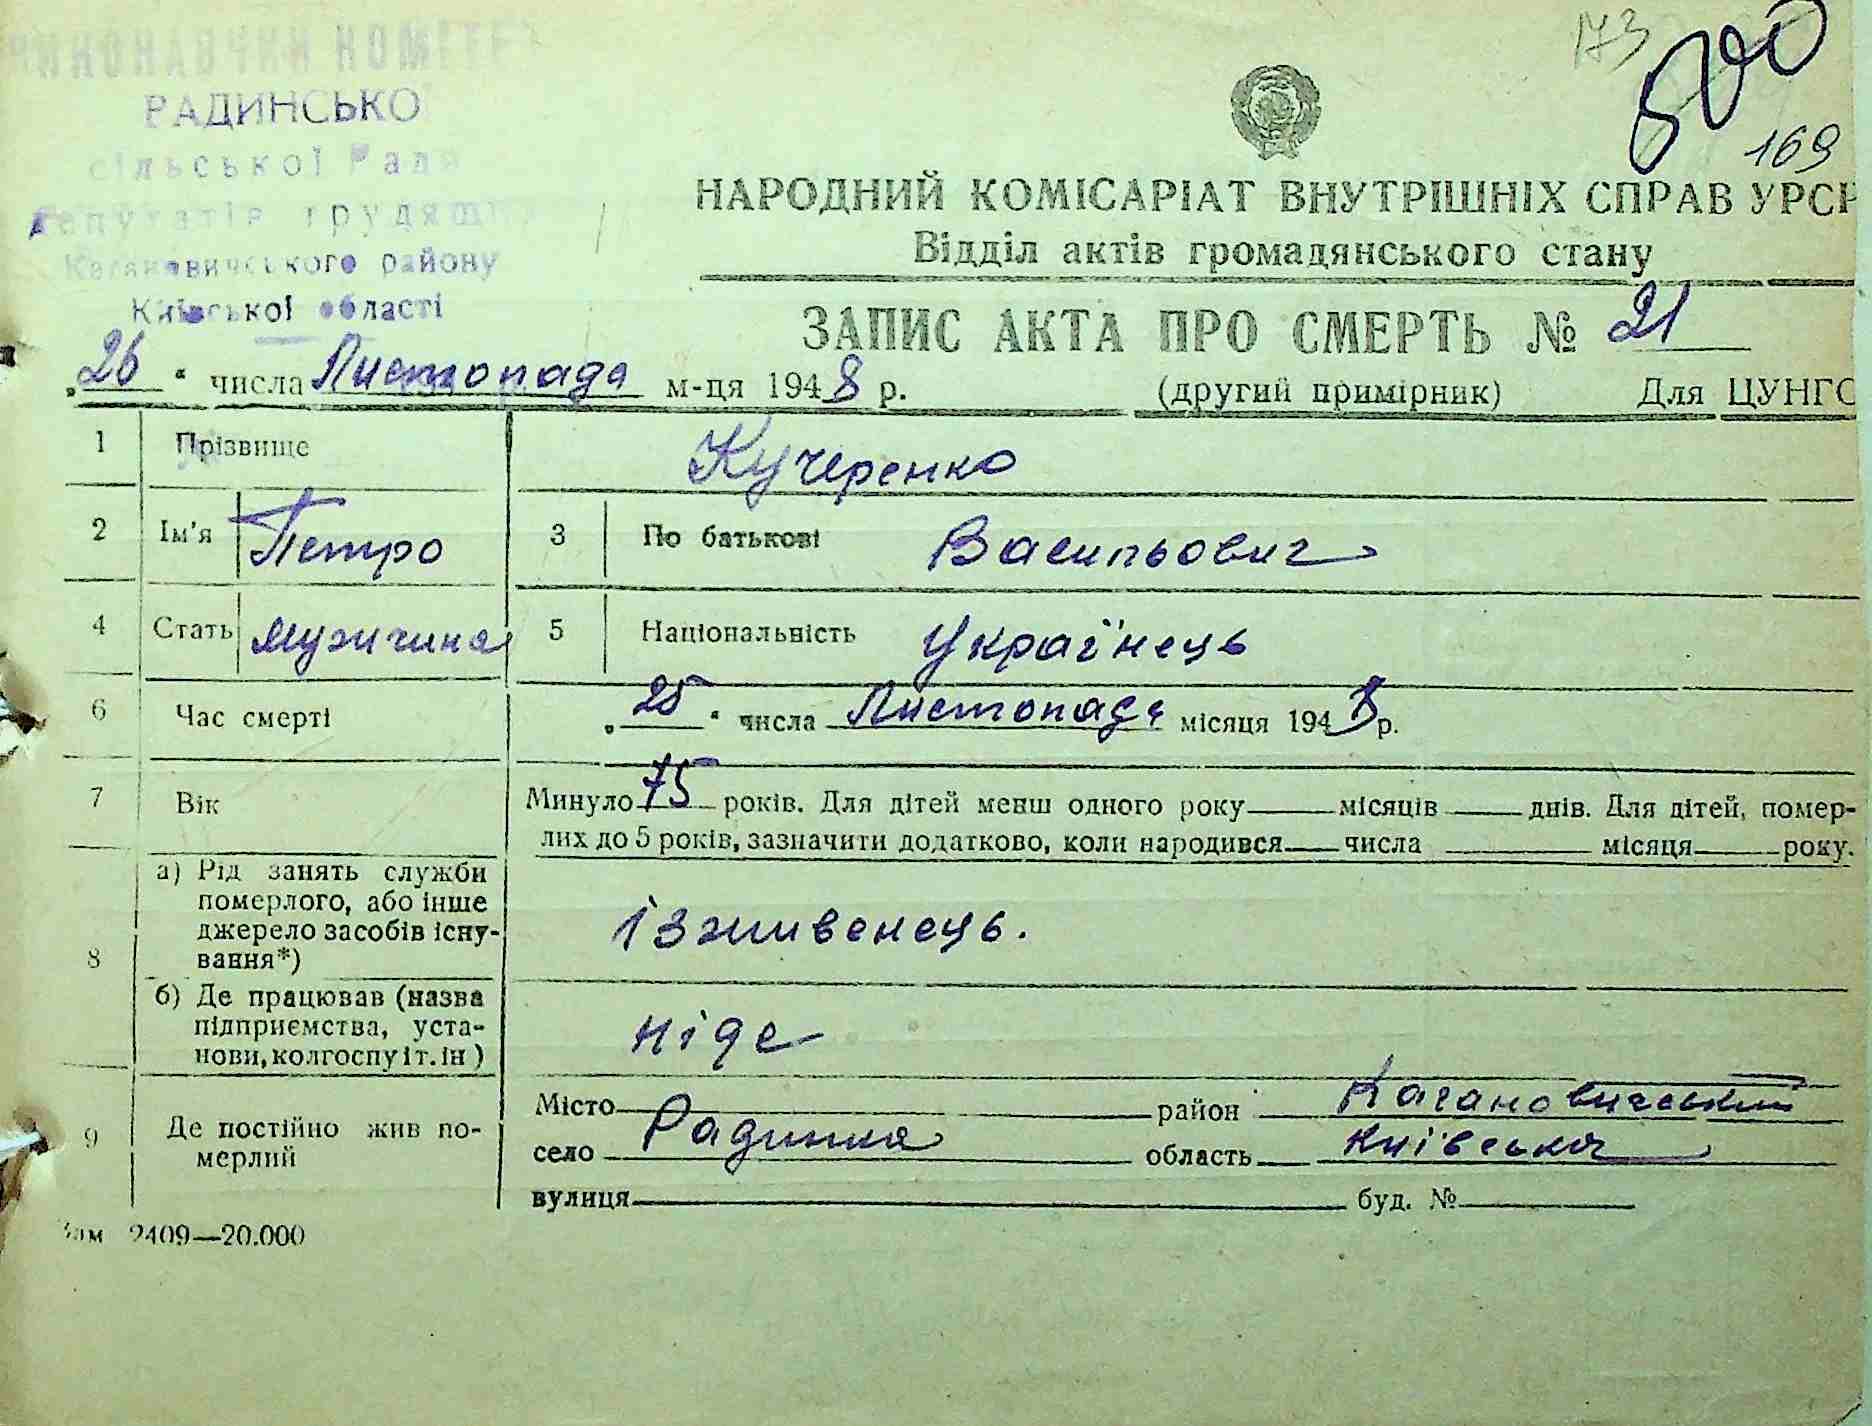 173
500
169
ВИКОНАВЧИЙ КОМІТЕТ
РАДИНСЬКО
сільської Ради
депутатів трудящих
Кагановичського району
Київської області
НАРОДНИЙ КОМІСАРІАТ ВНУТРІШНІХ СПРАВ УРСР
Відділ актів громадянського стану
ЗАПИС АКТА ПРО СМЕРТЬ № 21
„26“ числа Листопада м-ця 1948 р. (другий примірник) Для ЦУНГО
1 Прізвище Кучеренко
2 Ім'я Петро 3 По батькові Васильович
4 Стать мужчина 5 Національність Українець
6 Час смерті „25“ числа Листопада місяця 1948 р.
7 Вік Минуло 75 років. Для дітей менш одного року місяців днів. Для дітей, помер-
лих до 5 років, зазначити додатково, коли народився числа місяця року.
8 а) Рід занять служби
померлого, або інше
джерело засобів існу-
вання*)
ізживенець.
б) Де працював (назва
підприємства, уста-
нови, колгоспу і т. ін)
ніде
9 Де постійно жив по-
мерлий
Місто район Кагановичеський
село Радинка область Київська
вулиця буд. №
Зам 2409—20.000